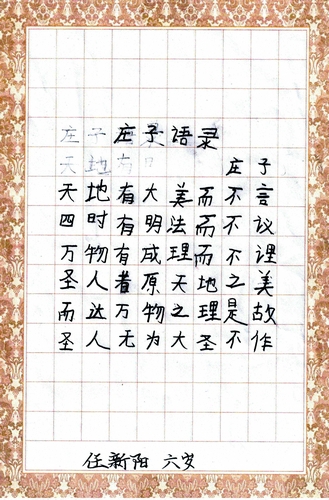 庄子语录
庄子
天地有大美而不言
四时有明法而不议
万物有成理而不理
圣人者原天地之美
而达万物之理是故
圣人无为大圣不作
任新阳 六岁